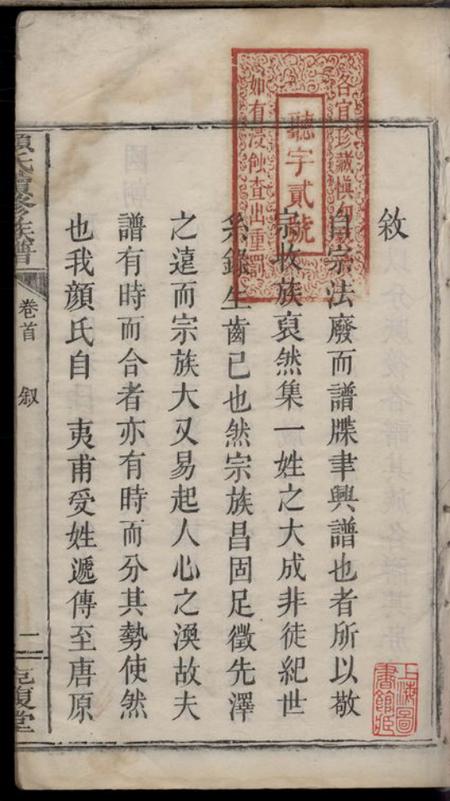 敘
自宗法廢而譜牒聿興譜也者所以敬
宗收族裒然集一姓之大成非徒紀世
系錄生齒已也然宗族昌固足徵先澤
之遠而宗族大又易起人心之渙故夫
譜有時而合者亦有時而分其勢使然
也我顏氏自　夷甫受姓遞傳至唐原
顏氏續修族譜
卷首　敘
二
克復堂
各宜珍藏慎勿
聽字貳號
如有浸蝕查出重罰
上海圖書館藏